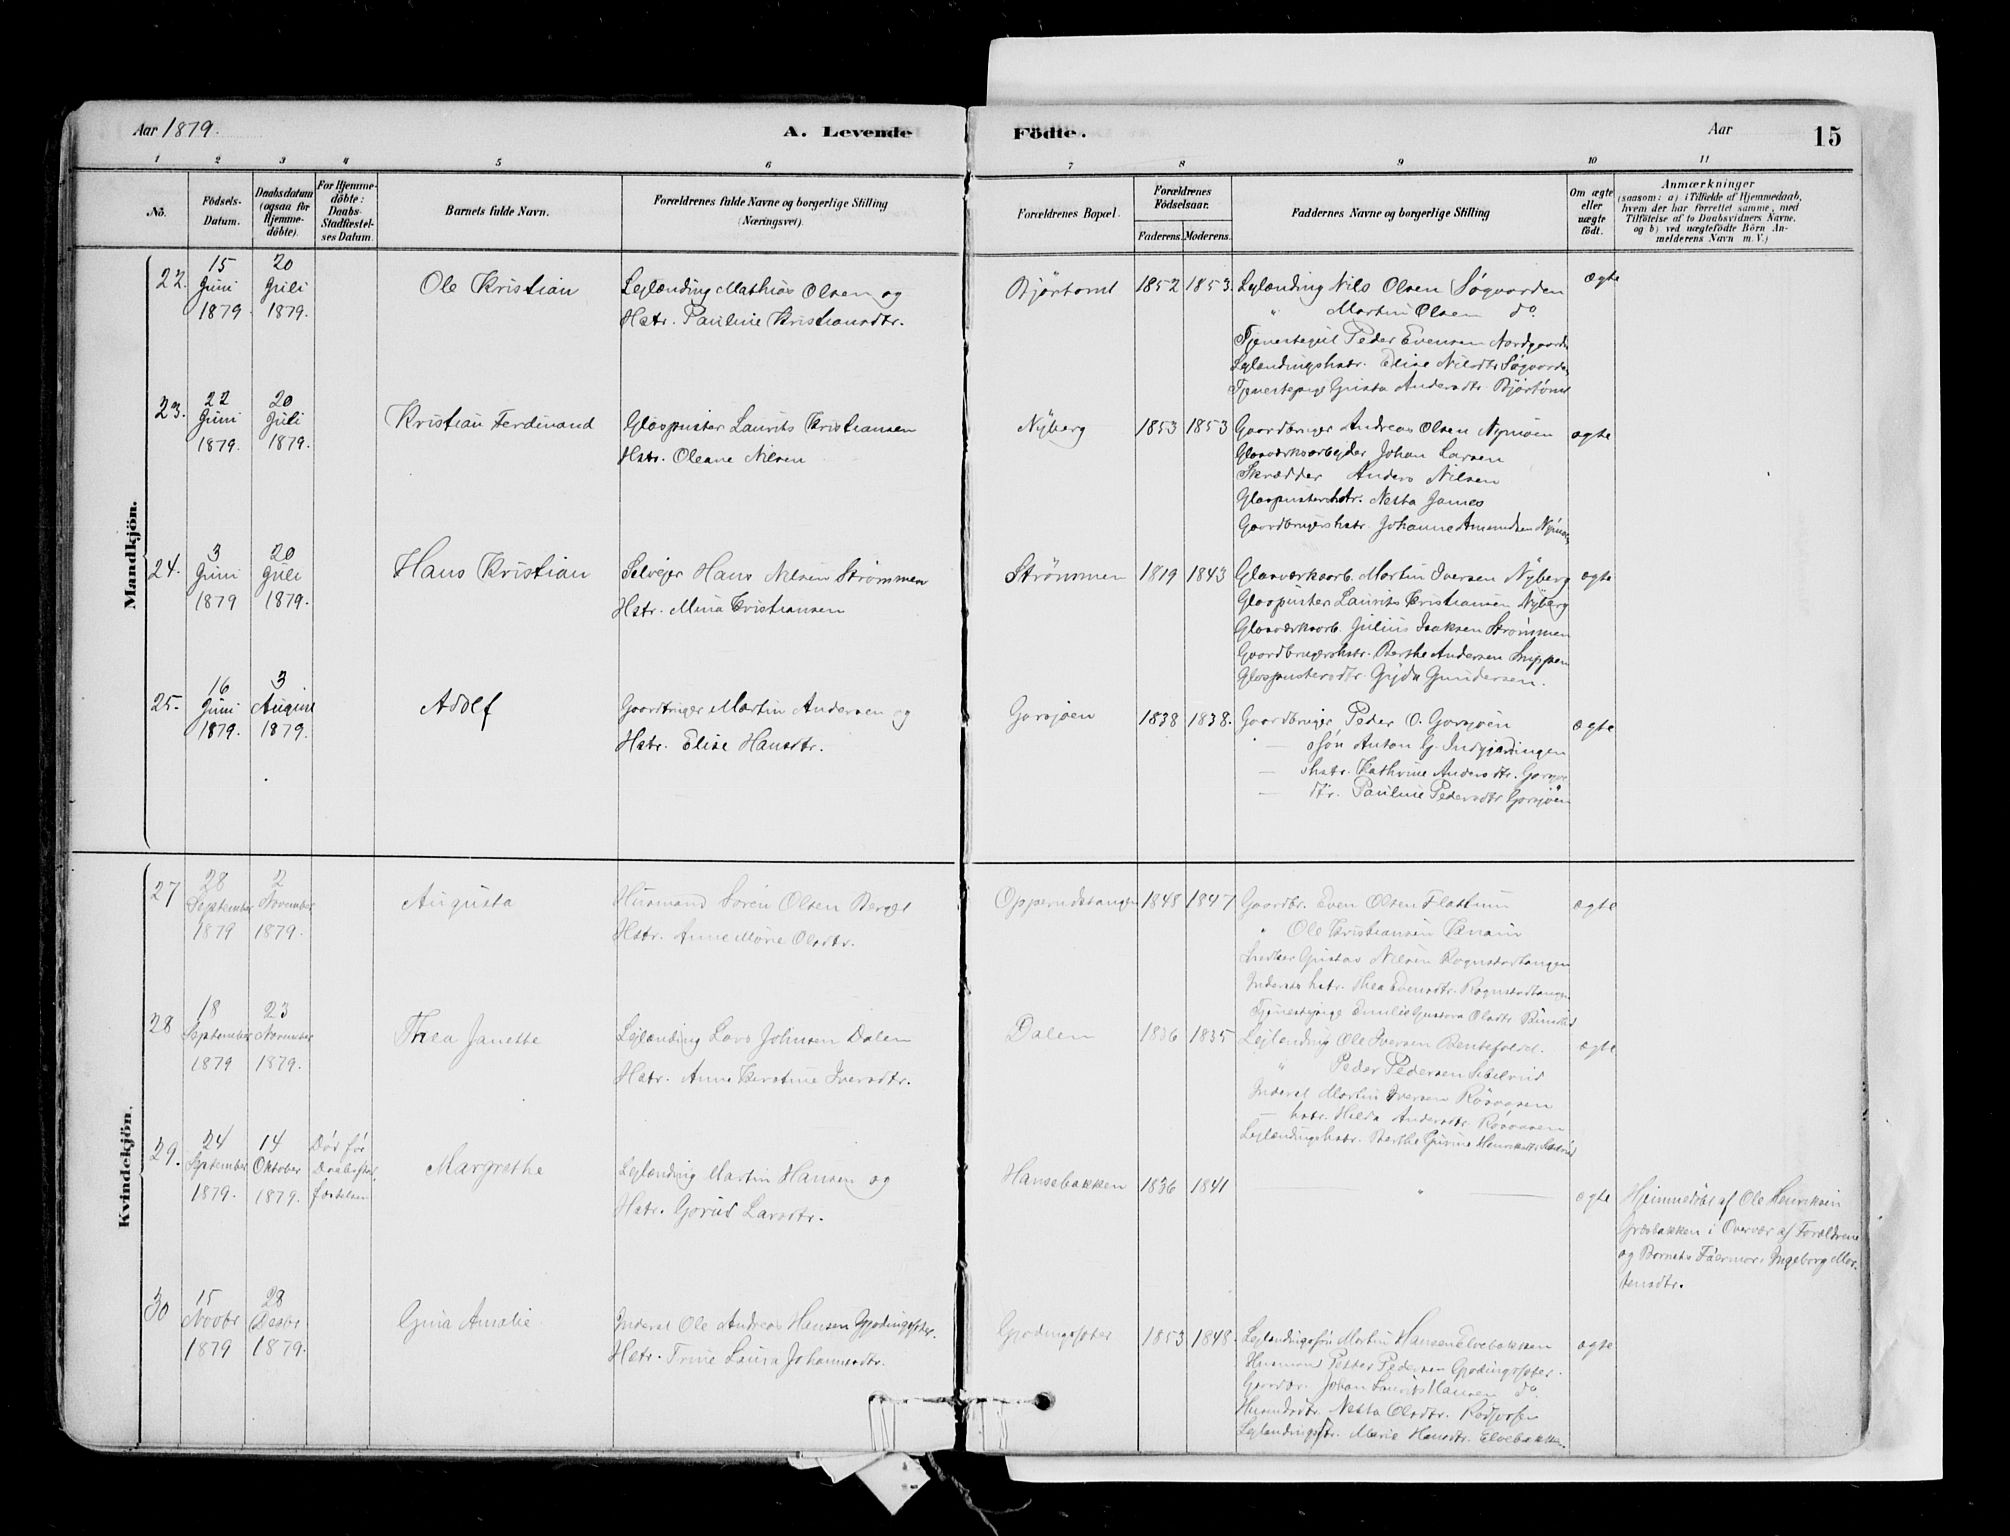 Aar 1879.
A. Levende
Födte.
Aar
15
1 2 3 4 5 6 7 8 9 10 11
No.
Födsels-Datum.
Daabsdatum (ogsaa for Hjemme-döbte).
For Hjemme-döbte: Daabs-Stadfæstel-ses Datum.
Barnets fulde Navn.
Forældrenes fulde Navne og borgerlige Stilling (Næringsvei).
Forældrenes Bopæl.
Forældrenes Födselsaar.
Faderens.
Moderens.
Faddernes Navne og borgerlige Stilling
Om ægte eller uægte födt.
Anmærkninger
(saasom: a) i Tilfælde af Hjemmedaab, hvem der har forrettet samme, med Tilföielse af to Daabsvidners Navne, og b) ved uægtefödte Börn An-melderens Navn m. V.)
Mandkjön.
22. 15 Juni 1879. 20 Juli 1879. Ole Kristian
Lejlænding Mathias Olsen og
Hstr. Pauline Kristiansdtr.
1852 1853.
Lejlænding Nils Olsen Søgaarden
" Martin Olsen do.
Peder Evensen
Lejlændingshstr. Elise Nilsdtr.
Tjenestepige Gusta Andersdtr.
ægte
23. 22 Juni 1879. 20 Juli 1879. Kristian Ferdinand
Glaspuster Laurits Kristiansen
Hstr. Oleane Nilsen
Nyberg 1853 1853
Gaardbruger Andreas Olsen Nymoen
Glasværksarbejder Johan Larsen
Skrædder Anders Nilsen
Glaspusterhstr. Netta James
Gaardbrugershstr. Johanne Amundsen
ægte
24. 3 Juni 1879 20 Juli 1879. Hans Kristian
Selvejer Hans Nilsen Strømmen
Hstr. Mina Kristiansen
Strömmen 1819 1843
Glasværksarb. Martin Iversen Nyberg
Glaspuster Laurits Kristiansen Nyberg
Glasværksarb. Julius Isaksen Strømmen
Gaardbrugershstr. Berthe Andersen
Glaspustersdtr. Gundersen.
ægte
25. 16 Juni 1879. 3 August 1879. Adolf
Gaardbruger Martin Andersen og
Hstr. Elise Hansdtr.
Garsjøen 1838 1838.
Gaardbruger Peder O. Garsjøen
— søn Anton G.
— hstr. Kathrine Andersdtr.
— dtr. Pauline Pedersdtr Garsjøen
ægte
Kvindekjön.
27 28 September 1879 2 November 1879. Augusta
Husmand Sören Olsen
Hstr. Anne Marie Olsdtr.
1848 1847
Gaardbr. Even Olsen
" Ole Kristiansen
Gustav Nilsen
hstr. Thea Evensdtr.
Tjenestepige Emilie Gustava Olsdtr.
ægte
28 18 September 1879 23 November 1879. Thea Janette
Lejlænding Lars Johnsen Dalen
Hstr. Anne Kerstine Iversdtr.
Dalen 1836 1835
Lejlænding Ole Iversen
" Peder Pedersen
Inderst Martin Iversen Rösaasen
— hstr. Hilda Andersdtr. Rösaasen
Lejlændingshstr. Berthe
ægte
29. 24 September 1879. 14 Oktober 1879. Död för Daabsstadfæstelsen Margrethe
Lejlænding Martin Hansen og
Hstr. Gorud Larsdtr.
Hansebakken 1836 1841
— " —
ægte
Hjemmedöbt af Ole Henriksen
Græsbakken i Overvær af Forældrene
og Barnets Farmor: Ingeborg Mor-
tensdtr.
30 15 Novbr 1879 28 Decbr 1879. Gina Amalie
Inderst Ole Andreas Hansen
Hstr. Trine Laura Johannesdtr.
1853 1848.
Lejlændingssön Martin Hansen Elvebakken
Husmand Petter Pedersen
Johan Laurits Hansen do.
Netta Olsdtr.
Marie Hansdtr. Elvebakken.
ægte